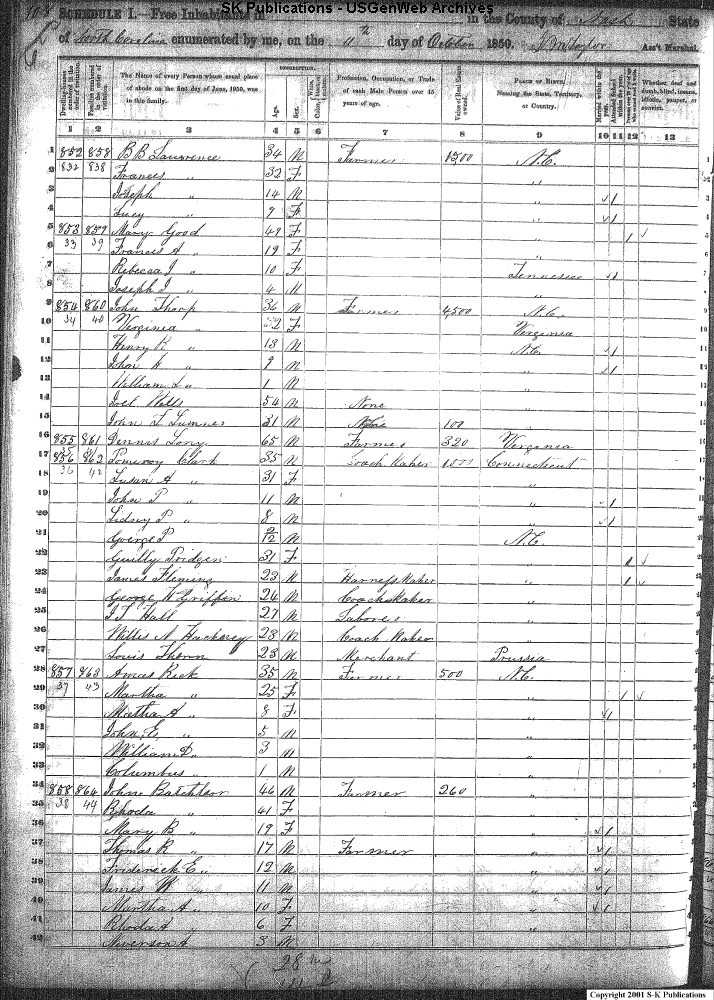 SK Publications - USGenWeb Archives
SCHEDULE I.—Free Inhabitants in in the County of Nash State
of North Carolina enumerated by me, on the 11th day of October 1850. Ass't Marshal.
DESCRIPTION.
Dwelling-houses numbered in the order of visitation. Families numbered in the order of visitation. The Name of every Person whose usual place of abode on the first day of June, 1850, was in this family. Age. Sex. Color, White, black, or mulatto. Profession, Occupation, or Trade of each Male Person over 15 years of age. Value of Real Estate owned. PLACE OF BIRTH. Naming the State, Territory, or Country. Married within the year. Attended School within the year. Persons over 20 y'rs of age who cannot read & write. Whether deaf and dumb, blind, insane, idiotic, pauper, or convict.
1 2 3 4 5 6 7 8 9 10 11 12 13
1 852 858 B B Lawrence 34 M Farmer 1500 N.C.
2 832 838 Frances " 32 F "
3 Joseph " 14 M " 1
4 Lucy " 9 F " 1
5 853 859 Mary Good 49 F " 1
6 33 39 Frances A " 19 F "
7 Rebecca J " 10 F Tennessee 1
8 Joseph J " 4 M "
9 854 860 John Tharp 36 M Farmer 4500 N.C.
10 34 40 Virginia " F Virginia
11 Henry R " 13 M N.C. 1
12 John A " 9 M " 1
13 William L " 1 M "
14 Joel Wells 54 M None "
15 John F Lumner 31 M 100 "
16 855 861 Dennis Long 65 M Farmer 320 Virginia
17 856 862 Pomeroy Clark 35 M Coach Maker Connecticut
18 36 42 Susan A " 31 F "
19 John P " 11 M " 1
20 Sidney P " 8 M " 1
21 George P 2/12 M N.C.
22 Guilly Pridgen 31 F " 1
23 James Fleming 23 M Harness Maker " 1
24 George W Griffin 26 M Coach Maker "
25 J J Hall 27 M Laborer "
26 Willis N Hackney 28 M Coach Maker "
27 Louis Thorn 23 M Merchant Prussia
28 857 863 Amos Rick 35 M Farmer 500 N.C.
29 37 43 Martha " 25 F " 1
30 Martha A " 8 F " 1
31 John E, " 5 M "
32 William D " 3 M "
33 Columbus " 1 M "
34 858 864 John Batchelor 46 M Farmer 260 "
35 38 44 Rhoda " 41 F "
36 Mary B " 19 F " 1
37 Thomas R " 17 M Farmer " 1
38 Frederick E " 12 M " 1
39 James W " 11 M " 1
40 Martha A " 10 F " 1
41 Rhoda A " 6 F "
42 Niverson A " 3 M "
28
Copyright 2001 S-K Publications